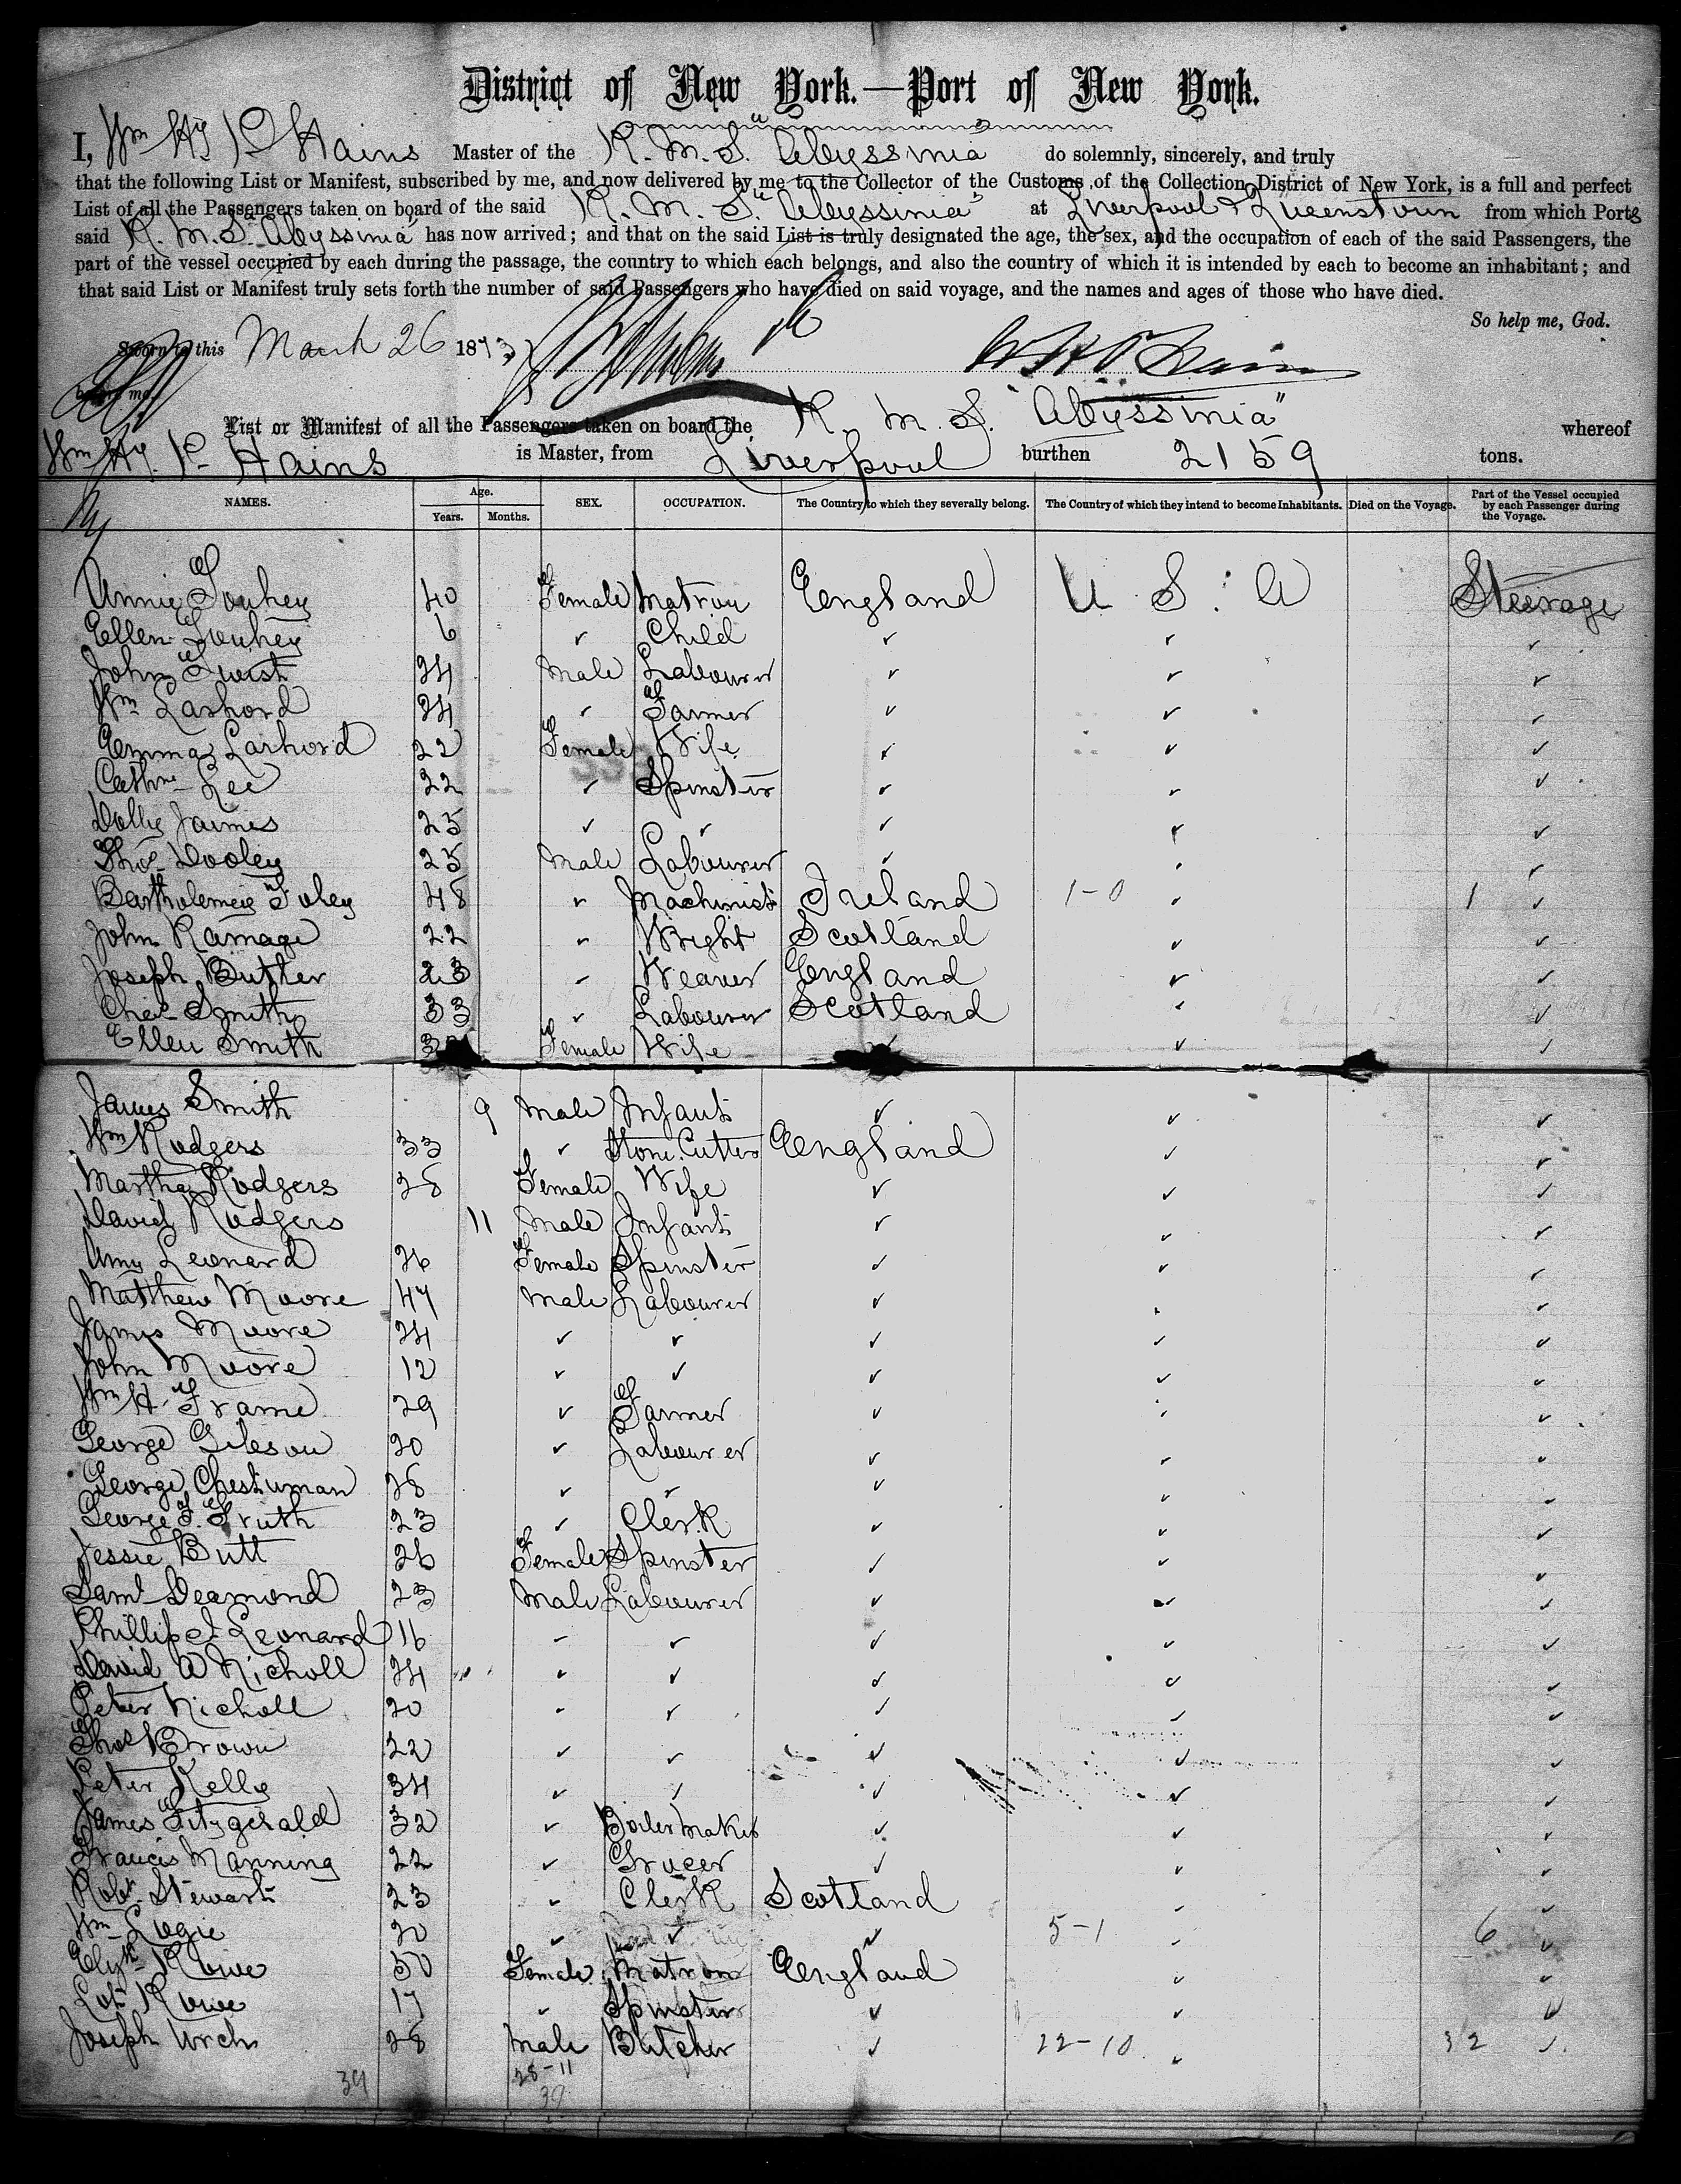 District of New York.—Port of New York.
I, Wm Hy P Hains Master of the R. M. S. "Abyssinia" do solemnly, sincerely, and truly
that the following List or Manifest, subscribed by me, and now delivered by me to the Collector of the Customs of the Collection District of New York, is a full and perfect
List of all the Passengers taken on board of the said R. M. S. "Abyssinia" at Liverpool & Queenstown from which Ports
said R. M. S. "Abyssinia" has now arrived; and that on the said List is truly designated the age, the sex, and the occupation of each of the said Passengers, the
part of the vessel occupied by each during the passage, the country to which each belongs, and also the country of which it is intended by each to become an inhabitant; and
that said List or Manifest truly sets forth the number of said Passengers who have died on said voyage, and the names and ages of those who have died.
So help me, God.
Sworn to this March 26 1873 W H P Hains
before me.
List or Manifest of all the Passengers taken on board the R. M. S. "Abyssinia" whereof
Wm Hy. P. Hains is Master, from Liverpool burthen 2159 tons.
NAMES. Age. Years. Months. SEX. OCCUPATION. The Country to which they severally belong. The Country of which they intend to become Inhabitants. Died on the Voyage. Part of the Vessel occupied by each Passenger during the Voyage.
Annie Touhey 40 Female Matron England U. S. A Steerage
Ellen Touhey 6 ✓ Child ✓ ✓ ✓
John Twist 24 Male Labourer ✓ ✓ ✓
Wm Lashord 24 ✓ Farmer ✓ ✓ ✓
Emma Lashord 22 Female Wife ✓ ✓ ✓
Cathne Lee 22 ✓ Spinster ✓ ✓ ✓
Dolly Jaimes 25 ✓ ✓ ✓ ✓ ✓
Thos Dooley 25 Male Labourer ✓ ✓ ✓
Bartholemew Foley 48 ✓ Machinist Ireland 1-0 ✓ 1 ✓
John Ramage 22 ✓ Wright Scotland ✓ ✓
Joseph Butler 23 ✓ Weaver England ✓ ✓
Chas Smith 33 ✓ Labourer Scotland ✓ ✓
Ellen Smith Female Wife ✓ ✓ ✓
James Smith 9 Male Infant ✓ ✓ ✓
Wm Rodgers 33 ✓ Stone Cutter England ✓ ✓
Martha Rodgers 28 Female Wife ✓ ✓ ✓
David Rodgers 11 Male Infant ✓ ✓ ✓
Amy Leonard 26 Female Spinster ✓ ✓ ✓
Matthew Moore 47 Male Labourer ✓ ✓ ✓
James Moore 24 ✓ ✓ ✓ ✓ ✓
John Moore 12 ✓ ✓ ✓ ✓ ✓
Wm H. Frame 29 ✓ Farmer ✓ ✓ ✓
George Gibson 20 ✓ Labourer ✓ ✓ ✓
George Chestuman 28 ✓ ✓ ✓ ✓ ✓
George F. Truth 23 ✓ Clerk ✓ ✓ ✓
Jessie Butt 26 Female Spinster ✓ ✓ ✓
Saml Deamond 23 Male Labourer ✓ ✓ ✓
Phillip J Leonard 16 ✓ ✓ ✓ ✓ ✓
David A Nicholl 24 ✓ ✓ ✓ ✓ ✓
Peter Nicholl 20 ✓ ✓ ✓ ✓ ✓
Thos Brown 22 ✓ ✓ ✓ ✓ ✓
Peter Kelly 34 ✓ ✓ ✓ ✓ ✓
James Fitzgerald 32 ✓ Boiler Maker ✓ ✓ ✓
Francis Manning 22 ✓ Grocer ✓ ✓ ✓
Robt Stewart 23 ✓ Clerk Scotland ✓ ✓
Wm Logie 20 ✓ ✓ ✓ 5-1 ✓ 6 ✓
Elizth Rowe 50 Female Matron England ✓ ✓
Rowe 17 ✓ Spinster ✓ ✓ ✓
Joseph Urch 28 Male Butcher ✓ 22-10 ✓ 32 ✓
39 28-11
39